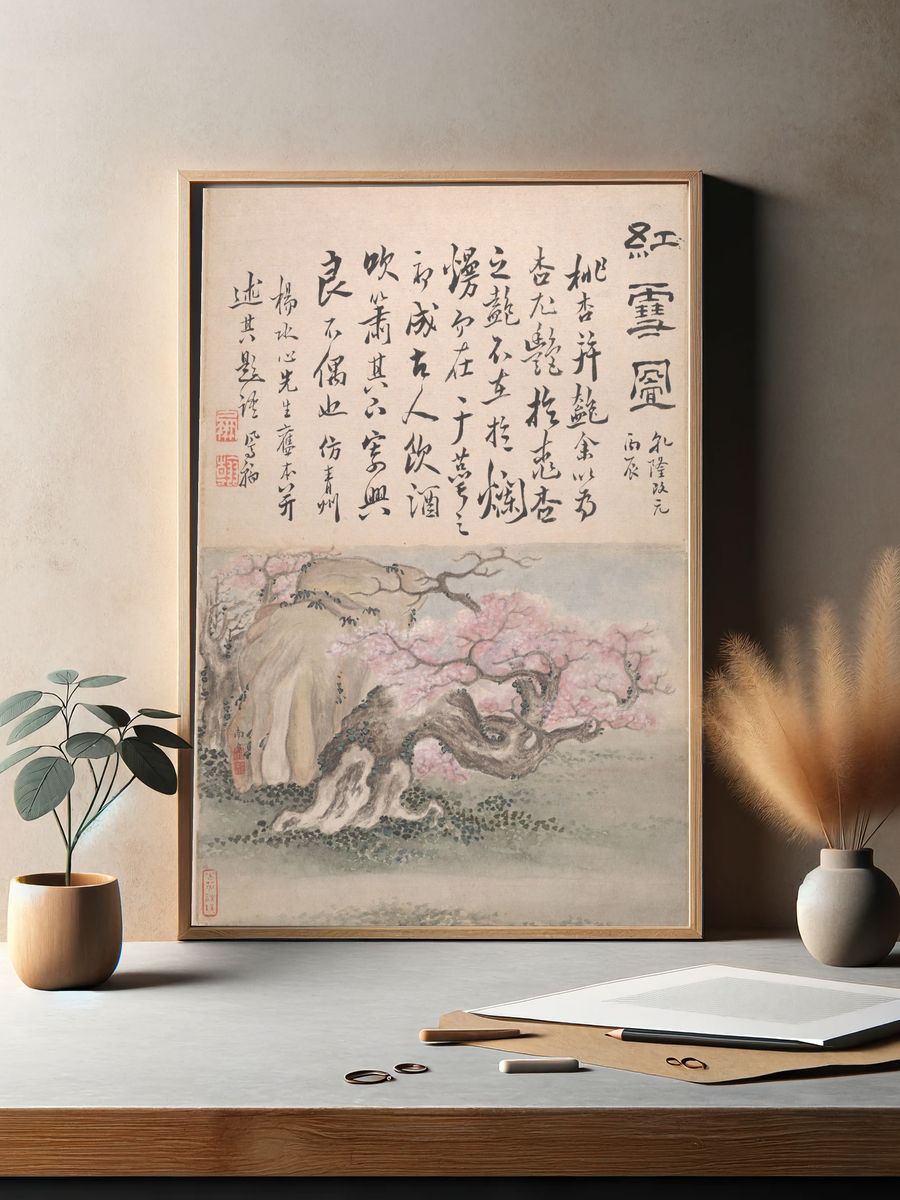 紅雪圖
乹隆改元
丙辰
桃杏并艶余以為
杏尤艷於桃杏
之艶不在於爛
熳而在于之
初成古人飲酒
吹簫其下寔興
良不偶也仿青州
楊水心先生舊本并
述其題語